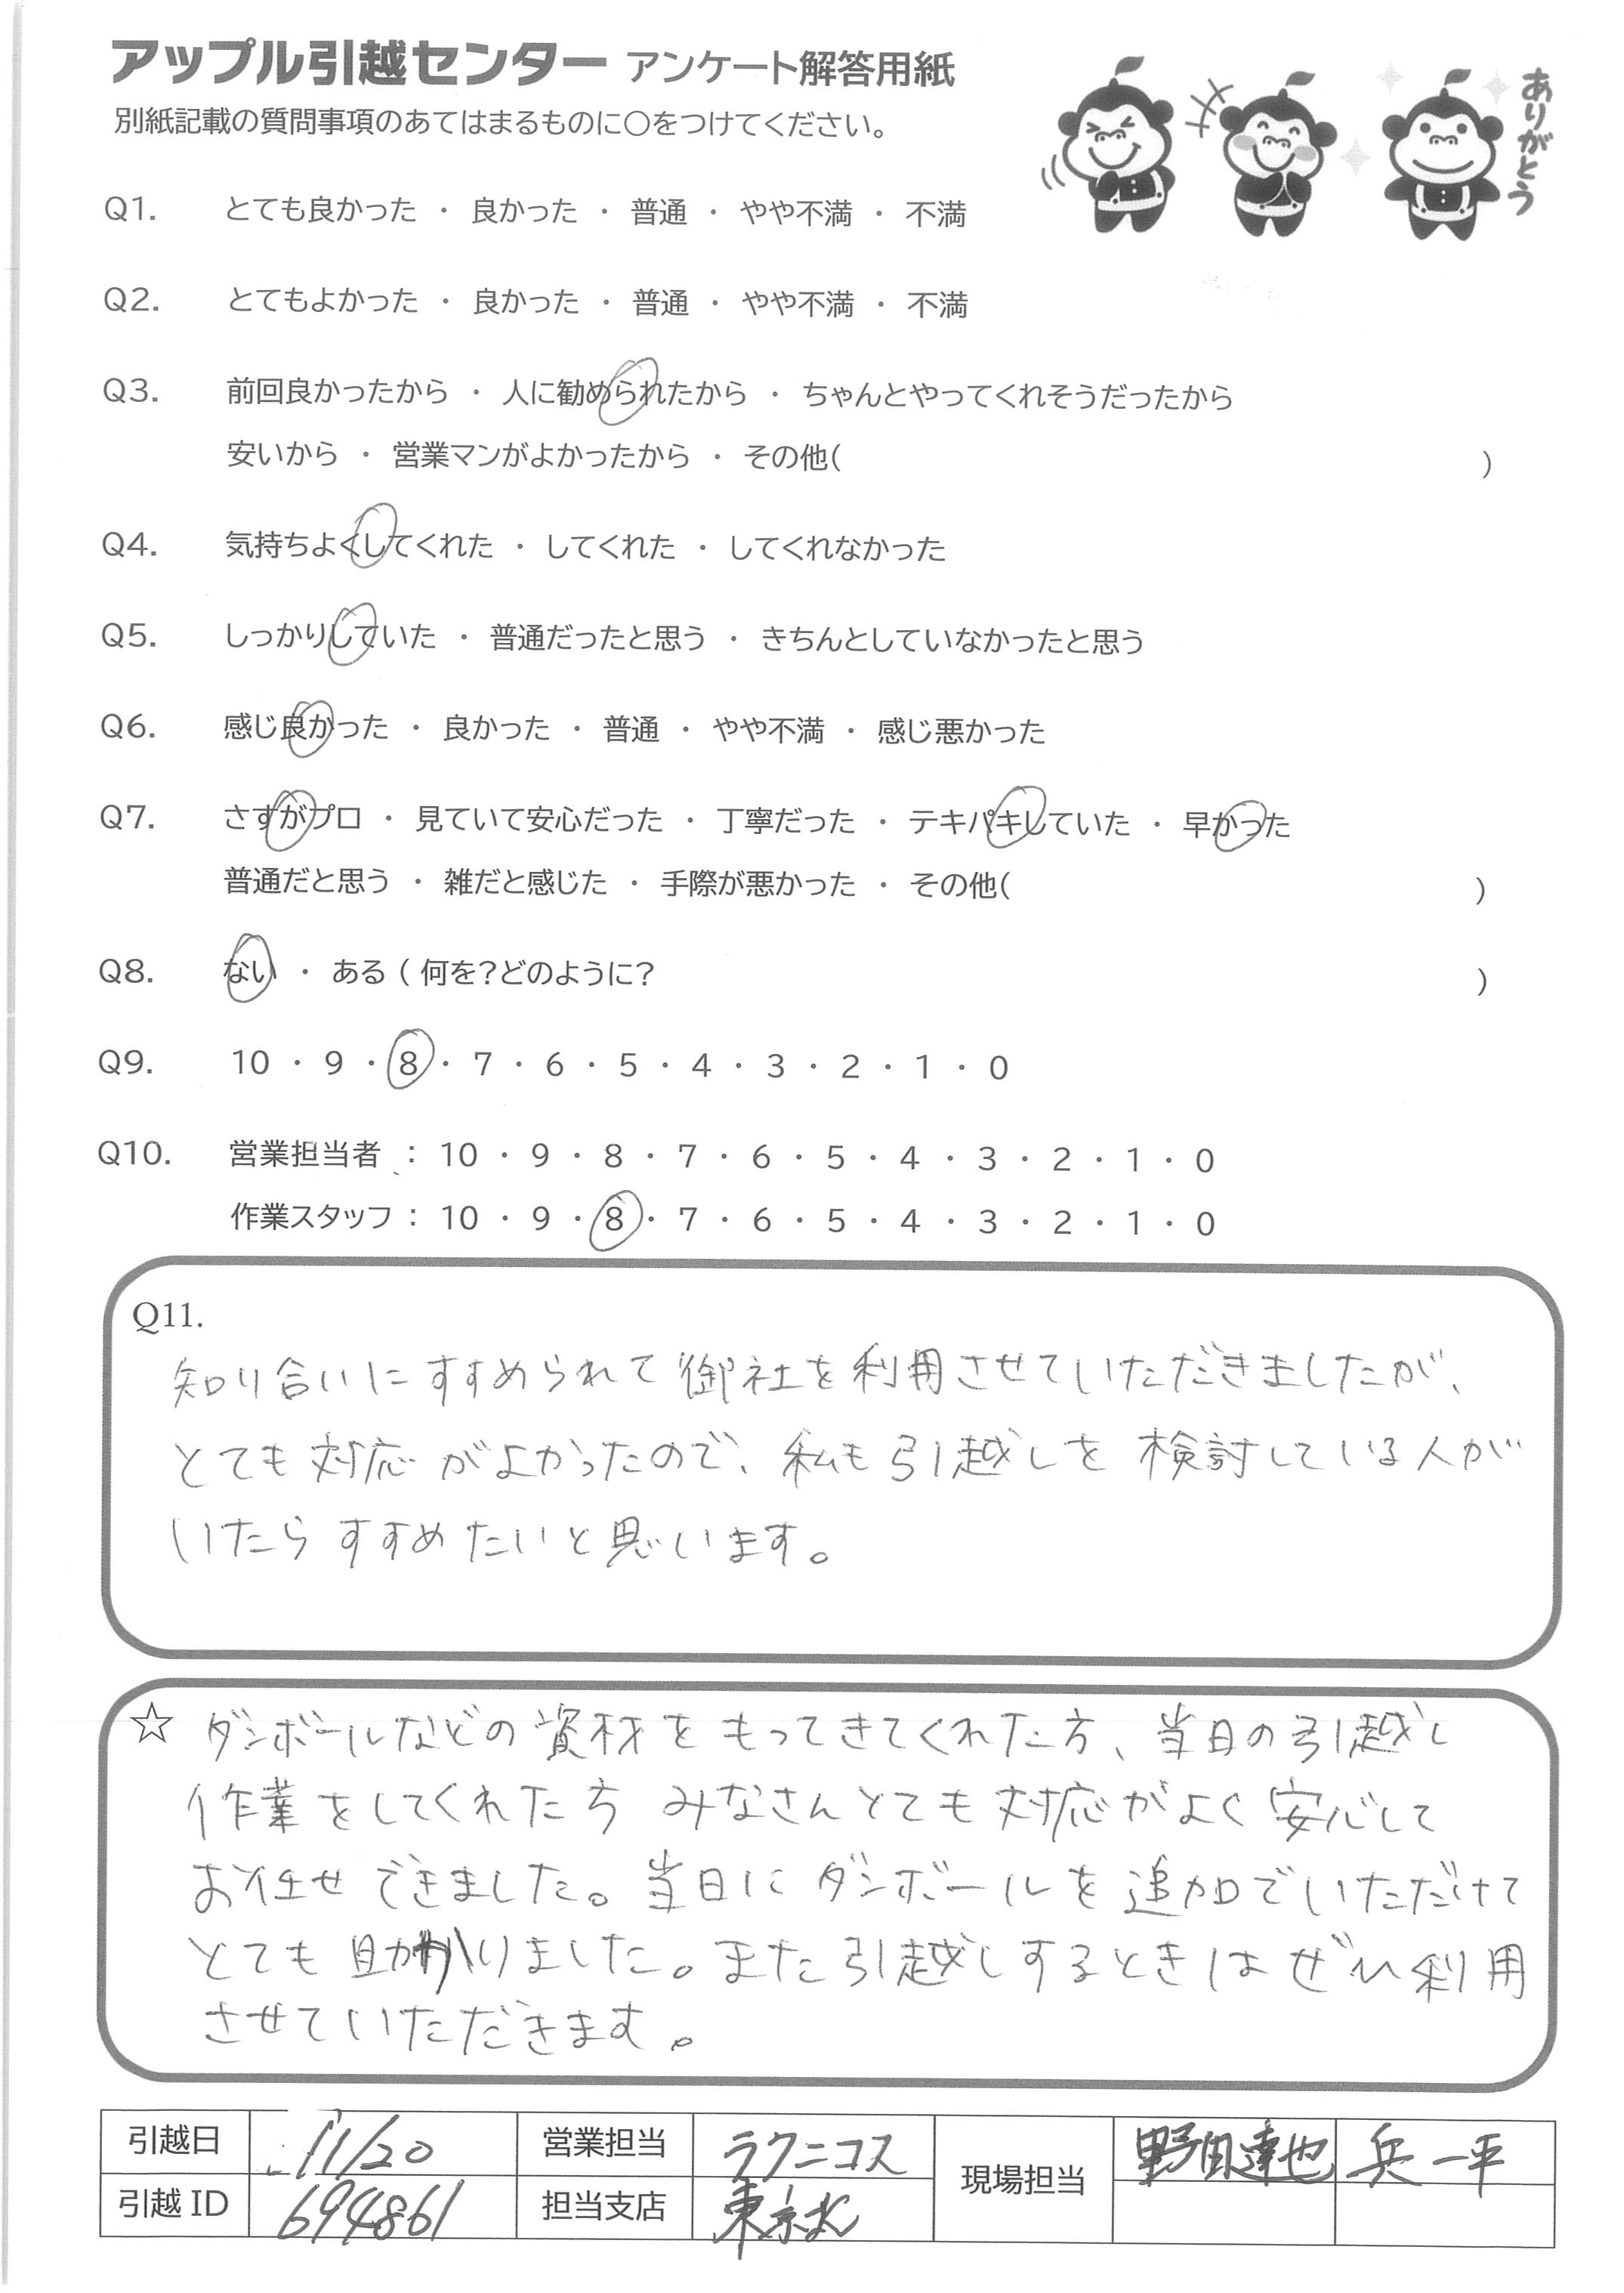 アップル引越センター アンケート解答用紙
別紙記載の質問事項のあてはまるものに○をつけてください。
ありがとう
Q1. とても良かった ・ 良かった ・ 普通 ・ やや不満 ・ 不満
Q2. とてもよかった ・ 良かった ・ 普通 ・ やや不満 ・ 不満
Q3. 前回良かったから ・ 人に勧められたから ・ ちゃんとやってくれそうだったから
安いから ・ 営業マンがよかったから ・ その他( )
Q4. 気持ちよくしてくれた ・ してくれた ・ してくれなかった
Q5. しっかりしていた ・ 普通だったと思う ・ きちんとしていなかったと思う
Q6. 感じ良かった ・ 良かった ・ 普通 ・ やや不満 ・ 感じ悪かった
Q7. さすがプロ ・ 見ていて安心だった ・ 丁寧だった ・ テキパキしていた ・ 早かった
普通だと思う ・ 雑だと感じた ・ 手際が悪かった ・ その他( )
Q8. ない ・ ある ( 何を?どのように? )
Q9. 10 ・ 9 ・ 8 ・ 7 ・ 6 ・ 5 ・ 4 ・ 3 ・ 2 ・ 1 ・ 0
Q10. 営業担当者 : 10 ・ 9 ・ 8 ・ 7 ・ 6 ・ 5 ・ 4 ・ 3 ・ 2 ・ 1 ・ 0
作業スタッフ : 10 ・ 9 ・ 8 ・ 7 ・ 6 ・ 5 ・ 4 ・ 3 ・ 2 ・ 1 ・ 0
Q11.
知り合いにすすめられて御社を利用させていただきましたが、
とても対応がよかったので、私も引越しを検討している人が
いたらすすめたいと思います。
☆ ダンボールなどの資材をもってきてくれた方、当日の引越し
作業をしてくれた方 みなさんとても対応がよく安心して
お任せできました。当日にダンボールを追加でいただけて
とても助かりました。また引越しするときはぜひ利用
させていただきます。
引越日 11/20 営業担当 ラクニコス 現場担当 野田達也 兵一平
引越ID 694861 担当支店 東京北